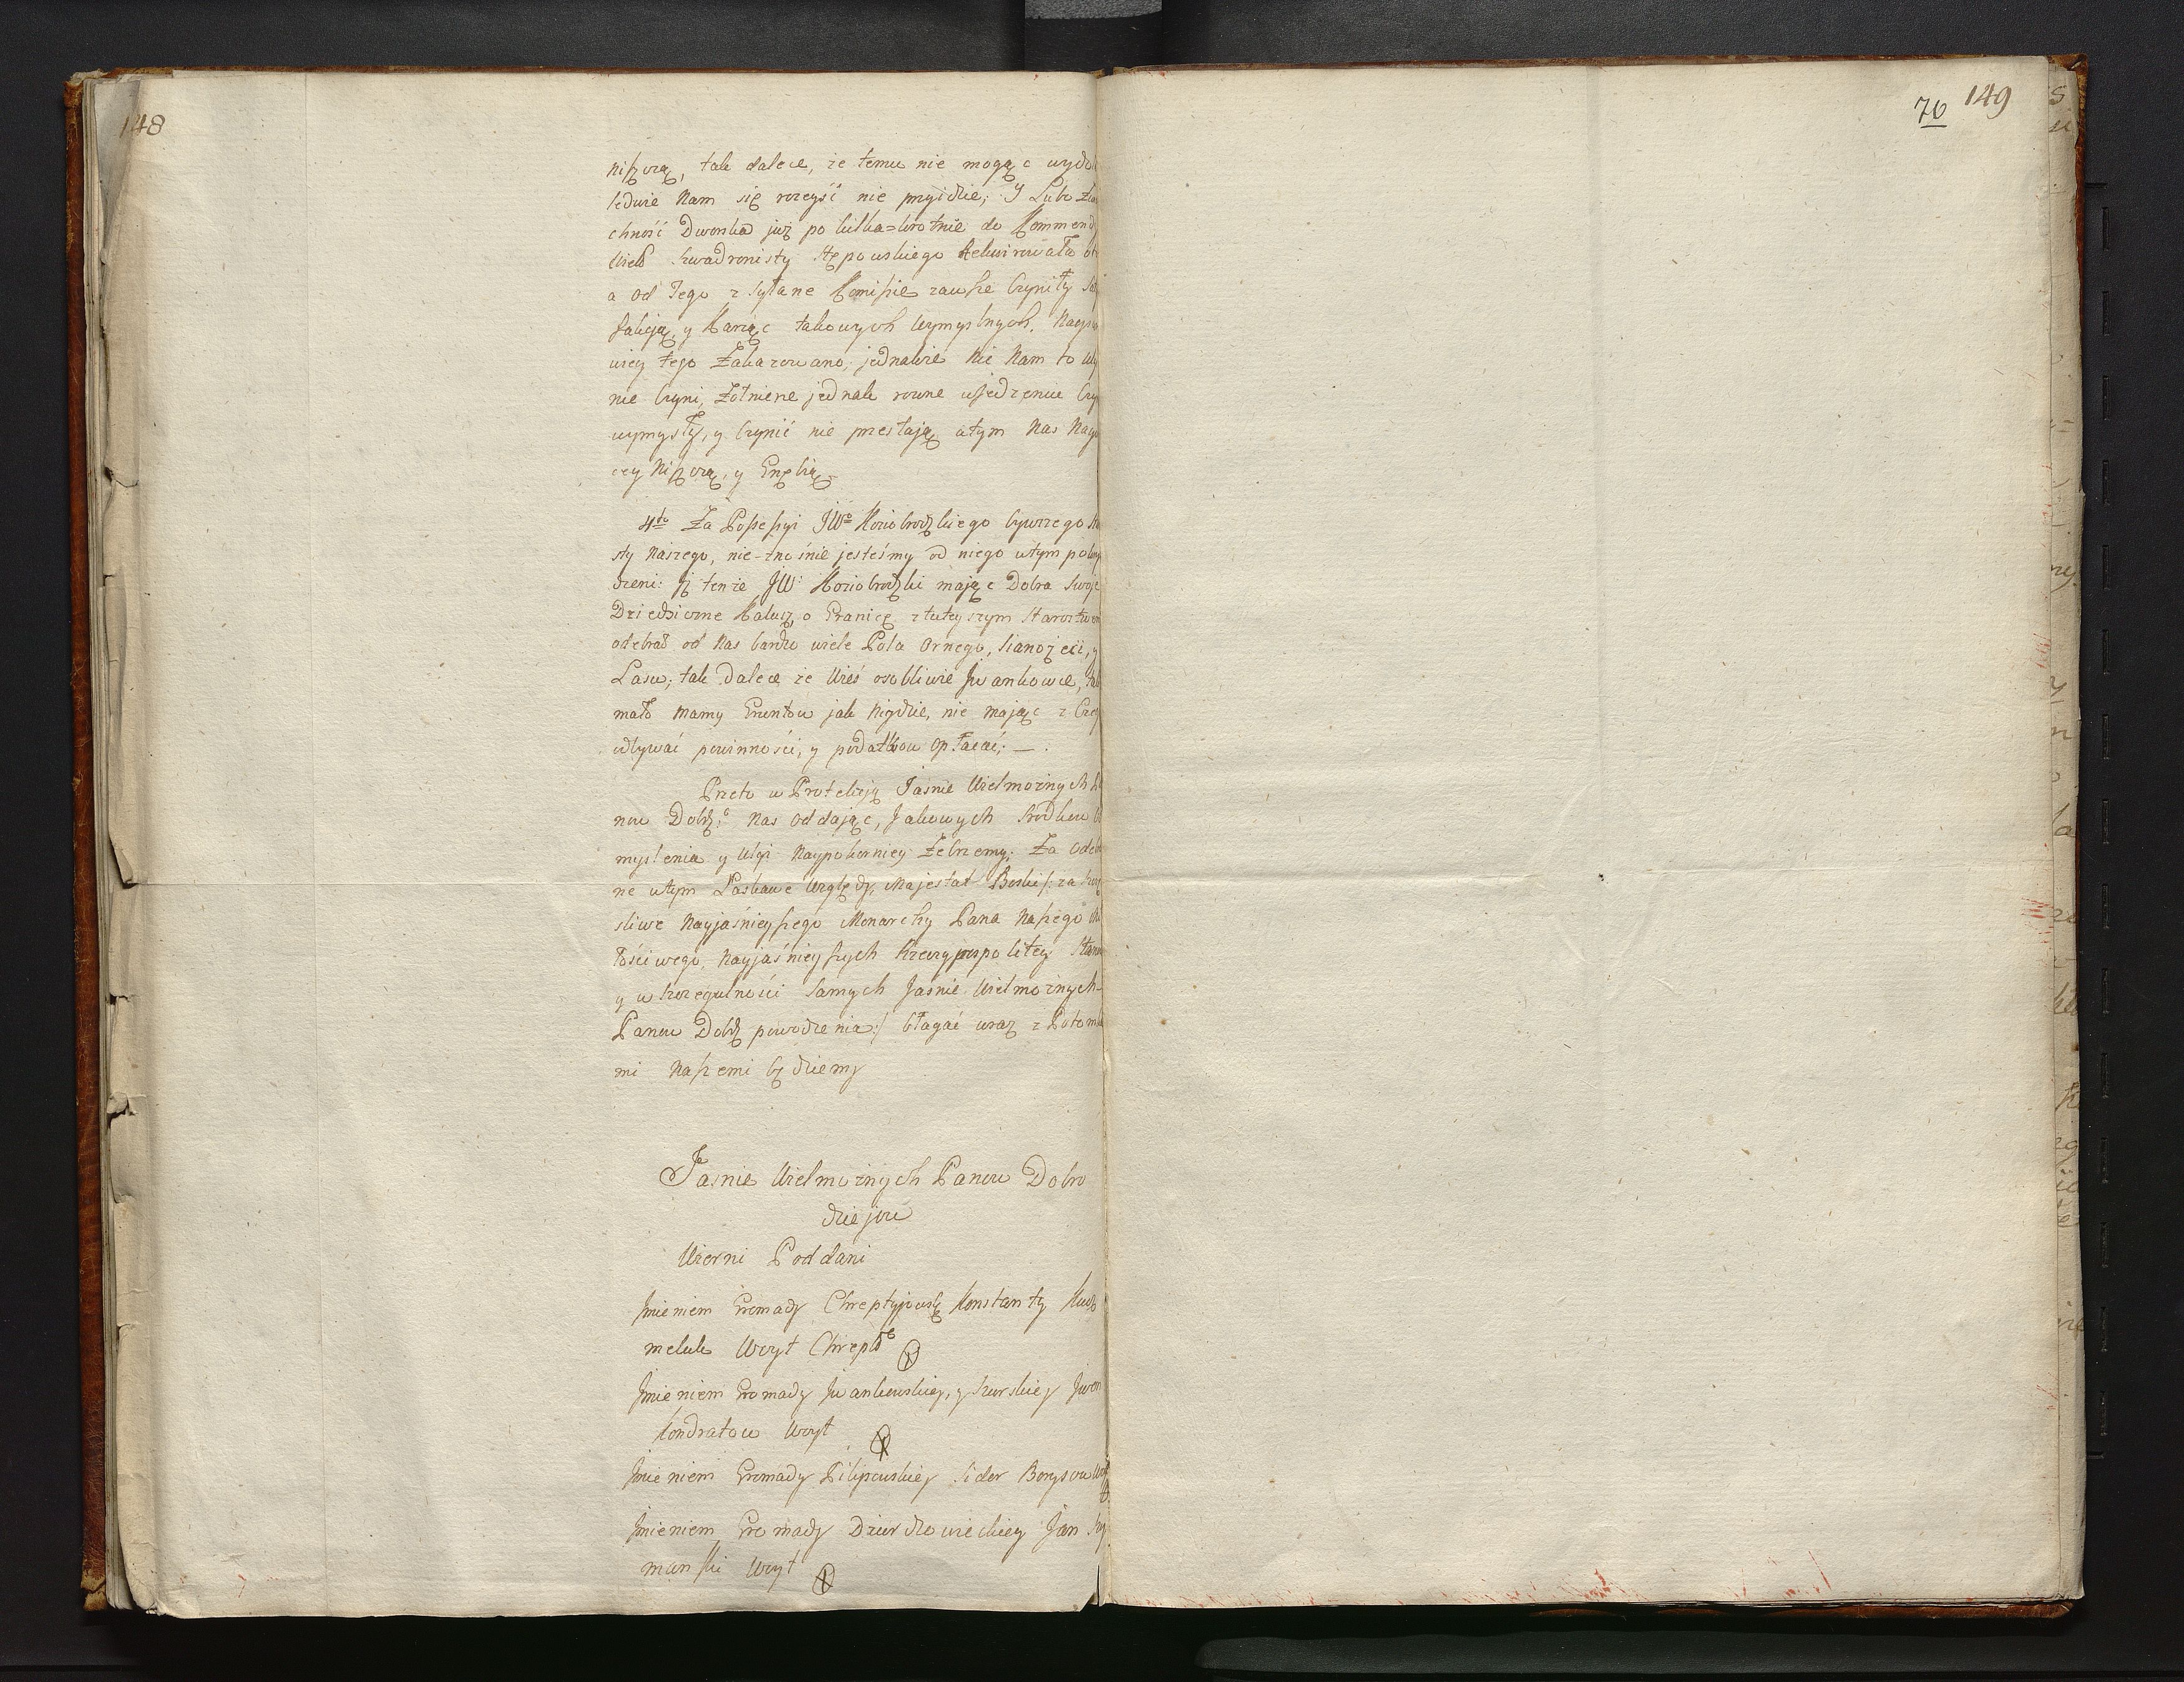 148
niszczą, tak dalece, że temu nie mogąc wydo
ledwie Nam się rozeyść nie przyidzie; Y Lubo Zwi
chność Dworska już po kilka=krotnie do Kommendy
Wielo Szwadronisty Stępowskiego Rekwirowała
a od Tego z syłane Komisśie zawsze Czyniły
fakcją y Karząc takowych Wymyslnych. Nayp
wiey tego Zakazowano; jednakże Nic Nam to
nie Czyni, Żołnierze jednak rowne wsjedzeniu Czy
wymysły, y Czynić nie przestają atym Nas Nay
cey Niszczą, y Gnębią.
4to Za Possessyi JWo Koziobrodzkiego bywszego
sty Naszego, nie-znośnie jesteśmy od niego wtym pokrzy
dzeni: Jż tenże JW: Koziobrodzki mając Dobra Swoje
Dziedziczne Kalusz o Granicę z tuteyszym Starostwem
odebrał od Nas bardzo wiele Pola Ornego, Sianożęci, y
Lasu; tak Dalece że Wieś osobliwie Jwankowce, tak
mało mamy Gruntow jak Nigdzie, nie mając z Czeg
odbywać powinności, y podatkow opłacać; — .
Przeto w Protekcją Jaśnie Wielmożnych
now Dobrz: Nas oddając, Jakowych Srodkow
myslenia y Ulgi Naypokorniey Żebrzemy; Za Odeb
ne wtym Łaskawe Względy, Majestat Boski /: za szczę
sliwe Nayjaśnieyszego Monarchy Pana Naszego Mi
łościwego, Nayjaśnieyszych Rzeczypospolitey Stanow
y w Szczegulności Samych Jaśnie Wielmożnych-
Panow Dobrz powodzenia:/ błagać wraz z Potomka
mi Naszemi będziemy
Jaśnie Wielmożnych Panow Dobro
dziejow
Wierni Poddani
Jmieniem Gromady Chreptyjowsk Konstanty
meluk Woyt Chrept
Jmieniem Gromady Jwankowskiey, y Kurskiey Jwan
Kondratow Woyt
Jmieniem Gromady Pilipowskiey Sidor Borysow Woyt
Jmieniem Gromady Dziurdzowieckiey Jan Szy
manski Woyt
76 149